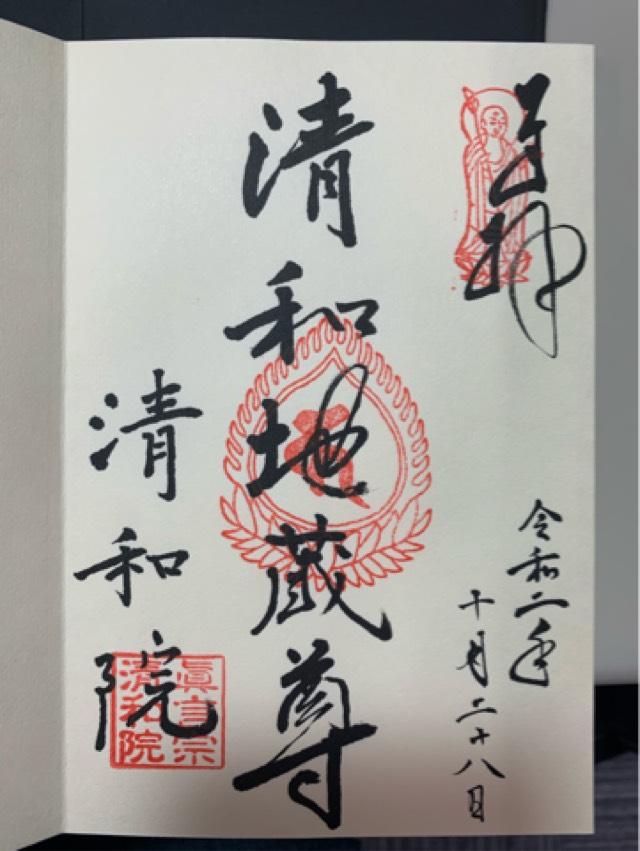 奉拝
令和二年
十月二十八日
清和地蔵尊
清和院
眞言宗
清和院